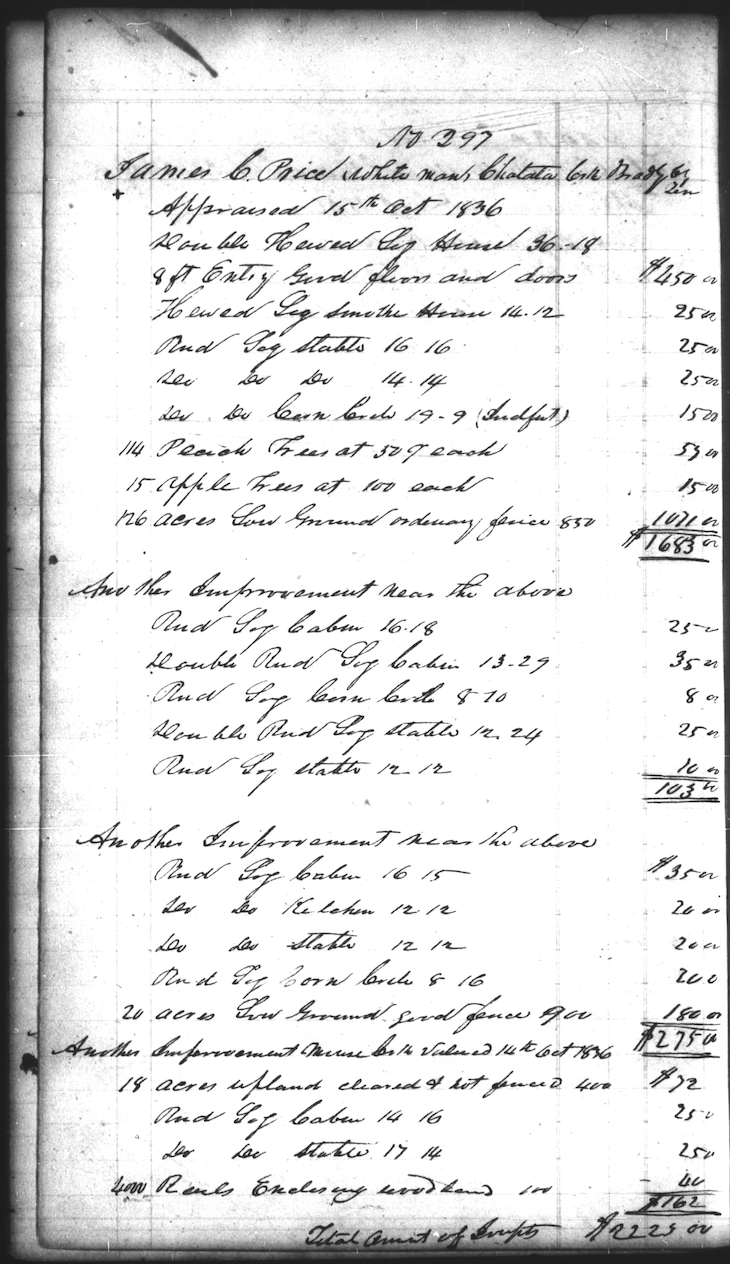 No 297
James C. Price white man Chatata Crk Bradly
Appraised 15th Oct 1836
Double Hewed Log House 36-18
8 ft Entry Good floors and doors $450 00
Hewed Log Smoke House 14.12 25 00
Rnd Log Stable 16 16 25 00
Do Do Do 14.14 25 00
Do Do Corn Crib 19-9 15 00
114 Peach Trees at 50 each 00
15 Apple Trees at 100 each 15 00
126 acres Low Ground ordinary fence 850 1071 00
$1683 00
Another Improvement near the above
Rnd Log Cabin 16.18 25 00
Double Rnd Log Cabin 13-29 35 00
Rnd Log Corn Crib 8 10 8 00
Double Rnd Log Stable 12.24 25 00
Rnd Log Stable 12 12 10 00
103 00
Another Improvement near the above
Rnd Log Cabin 16 15 $35 00
Do Do Kitchen 12 12 20 00
Do Do Stable 12 12 20 00
Rnd Log Corn Crib 8 16 20 0
20 acres Low Ground good fence 900 180 00
$275 00
Another Improvement Mouse Crk Valued 14th Oct 1836
18 acres upland cleared & not fenced 400 $72
Rnd Log Cabin 14 16 25 0
Do Do Stable 17 14 25 0
4000 Rails Enclosing woodland 100 40
$162
Total Amnt of Imprts $2223 00